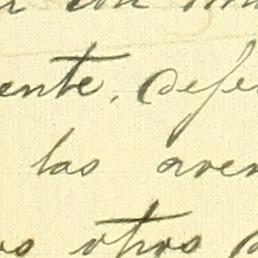 ente, defe
las aven
os otros